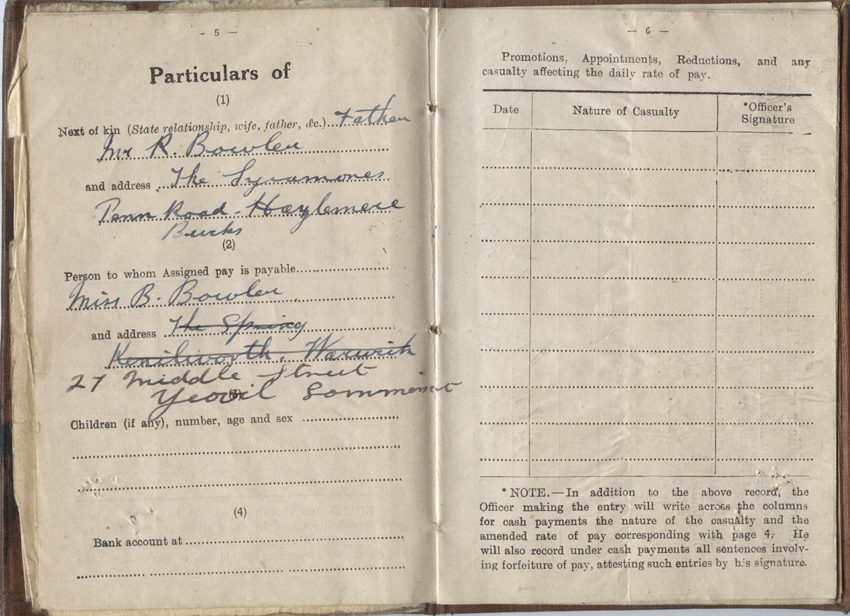 - 5 -
Particulars of
(1)
Next of kin (State relationship, wife, father, &c.) Father
Mr R. Bowler
and address The Sycamores
Penn Road - Hazlemere
Bucks
(2)
Person to whom Assigned pay is payable
Miss B. Bowler
and address The Spring
Kenilworth. Warwick
27 Middle Street
Yeovil Sommerset
(3)
Children (if any), number, age and sex
(4)
Bank account at
- 6 -
Promotions, Appointments, Reductions, and any
casualty affecting the daily rate of pay.
Date Nature of Casualty *Officer's
Signature
* NOTE.—In addition to the above record, the
Officer making the entry will write across the columns
for cash payments the nature of the casualty and the
amended rate of pay corresponding with page 4. He
will also record under cash payments all sentences involv-
ing forfeiture of pay, attesting such entries by his signature.